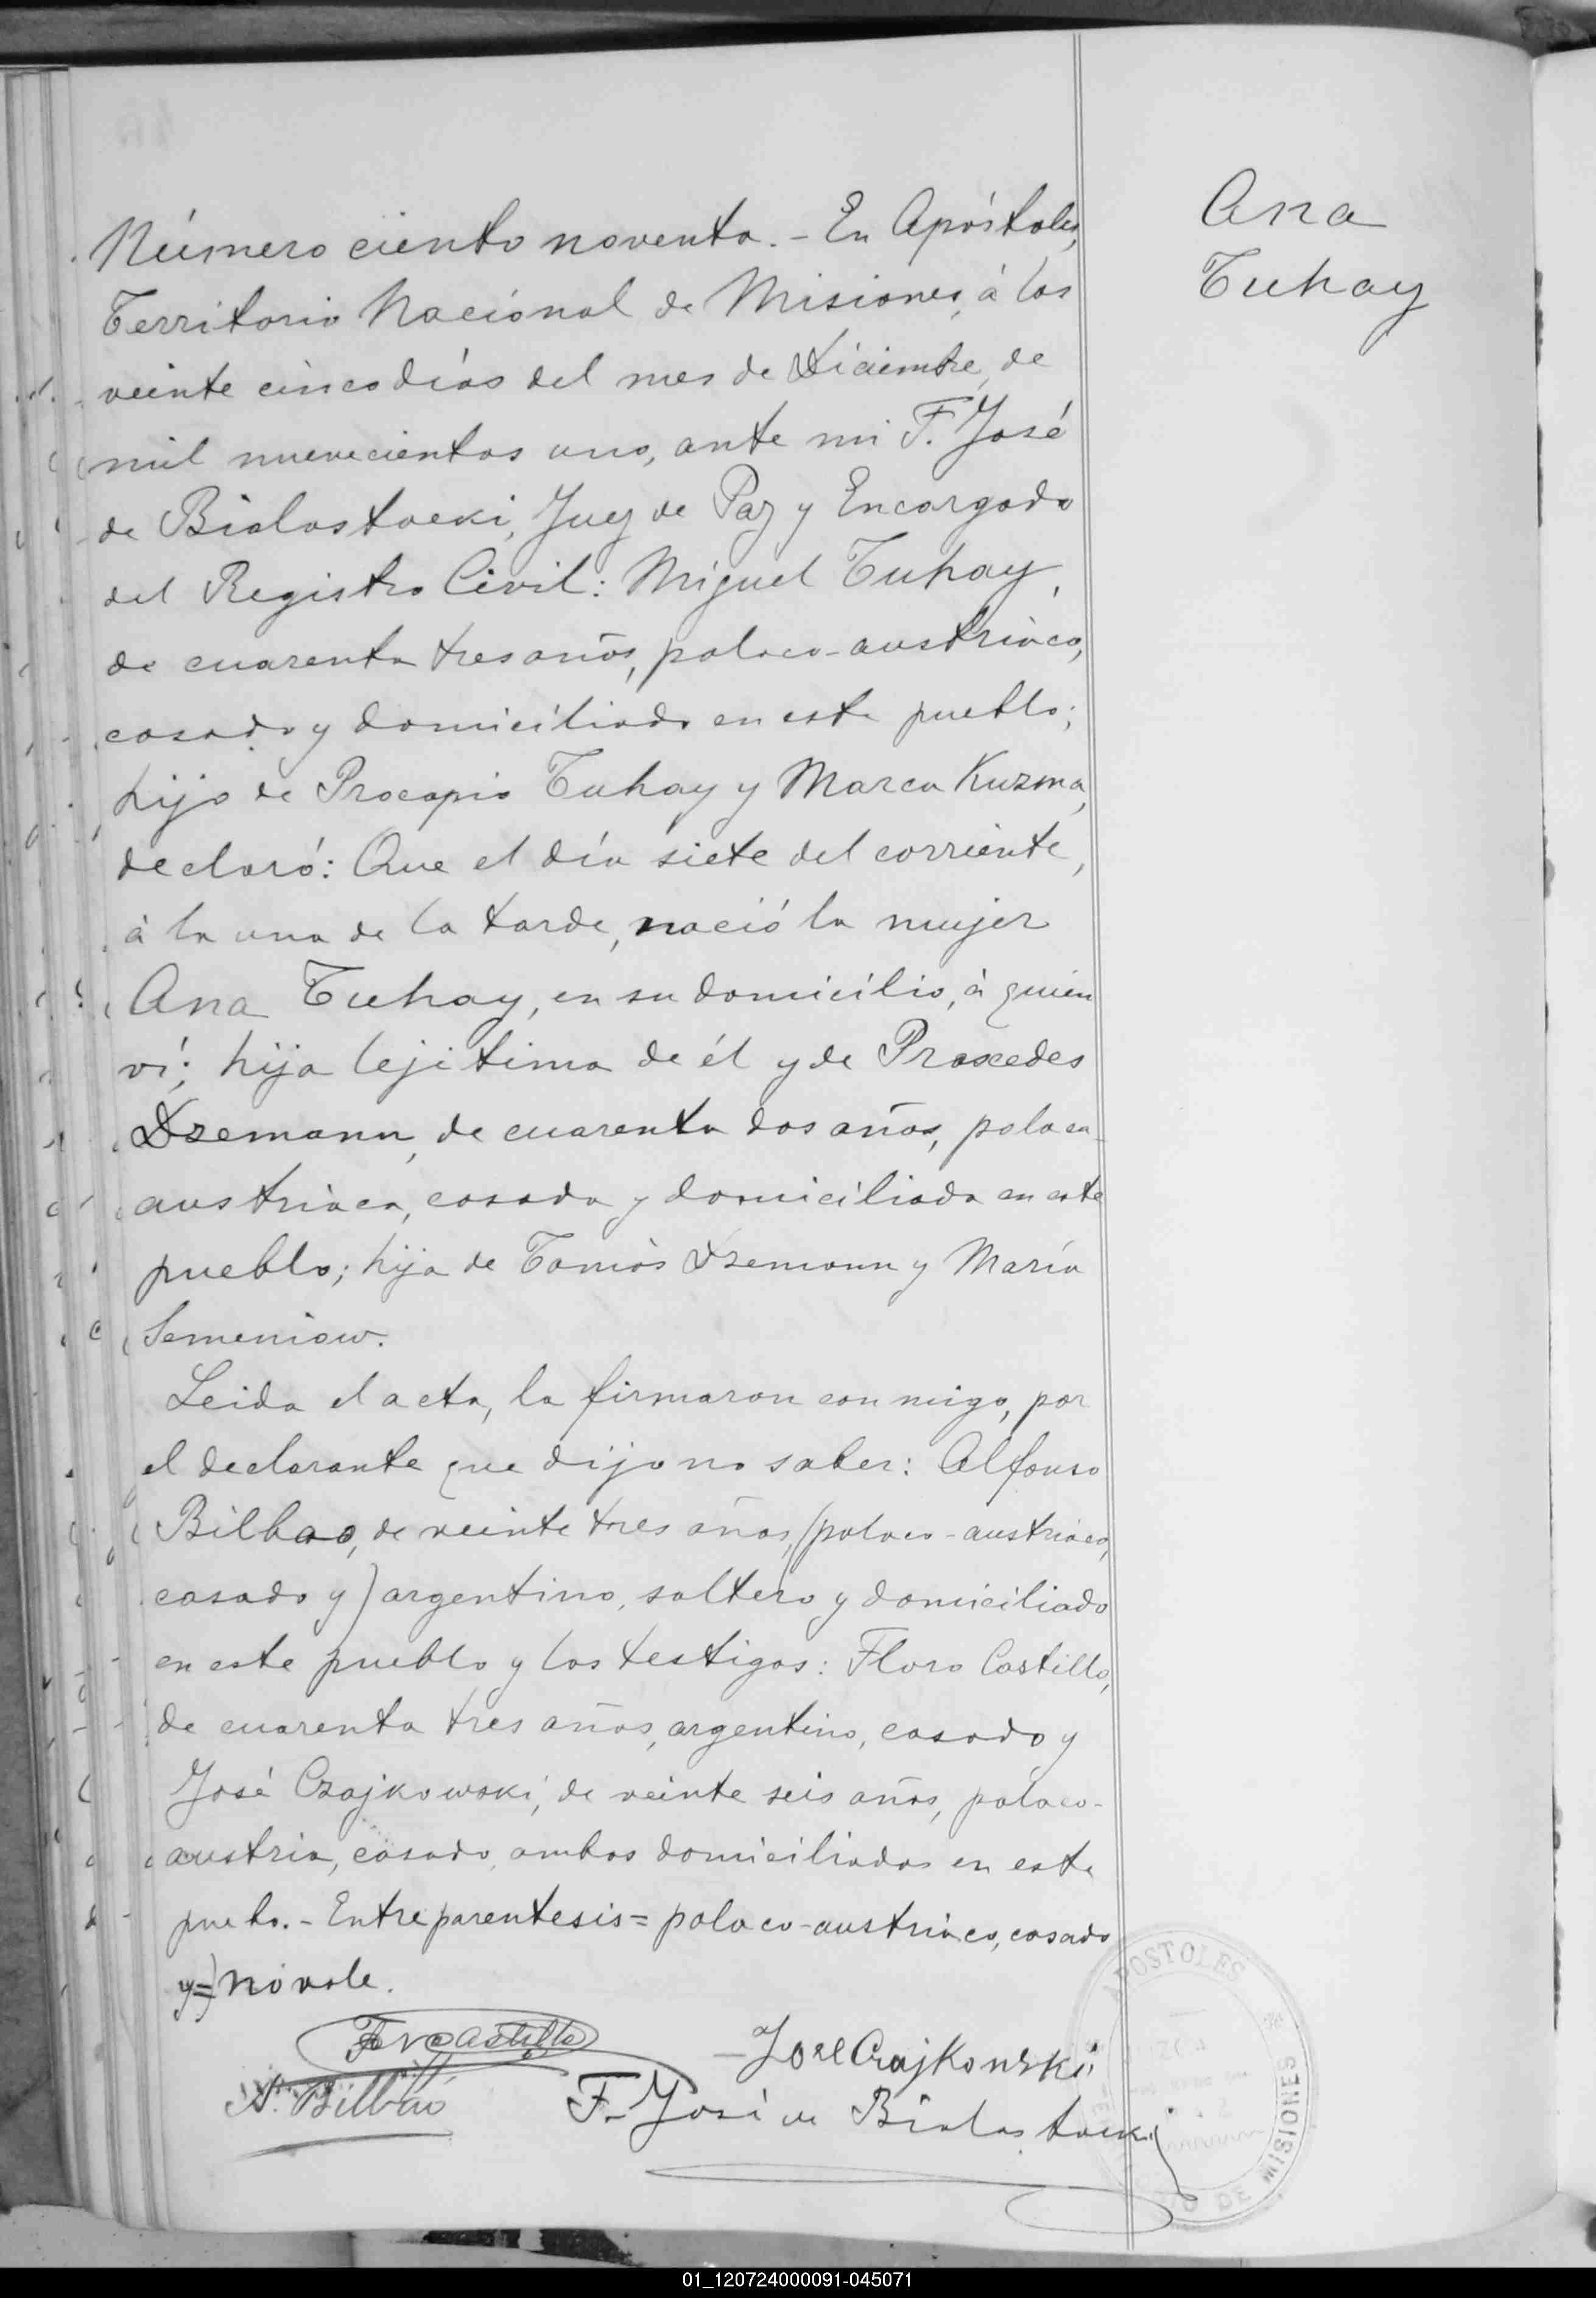 Ana
Tuhay
Número ciento noventa. - En Apóstoles,
Territorio Nacional de Misiones, á los
veinte cinco días del mes de Diciembre, de
mil nuevecientos uno, ante mi F. José
de Bialostocki, Juez de Paz y Encargado
del Registro Civil: Miguel Tuhay,
de cuarenta tres años, polaco-austriáco,
casado y domiciliado en este pueblo;
hijo de Procopio Tuhay y Marca Kuzma,
declaró: Que el día siete del corriente,
á la una de la tarde, nació la mujer
Ana Tuhay, en su domicilio, á quien
ví; hija lejitima de él y de Praxedes
Dzemann, de cuarenta dos años, polaca-
austriaca, casada y domiciliada en este
pueblo; hija de Tomás Dzemann y María
Semeniow.
Leida el acta, la firmaron con migo, por
el declarante que dijo no saber: Alfonso
Bilbao, de veinte tres años, (polaco-austriaco,
casado y) argentino, soltero y domiciliado
en este pueblo y los testigos: Floro Castillo,
de cuarenta tres años, argentino, casado y
José Czajkowski, de veinte seis años, polaco-
austria, casado, ambos domiciliados en este
pueblo. - Entre parentesis = polaco-austriaco, casado
y =) no vale.
Castillo
José Czajkowski
A. Bilbao
F. José de Bialostocki
APOSTOLES
DE MISIONES
01_120724000091-045071